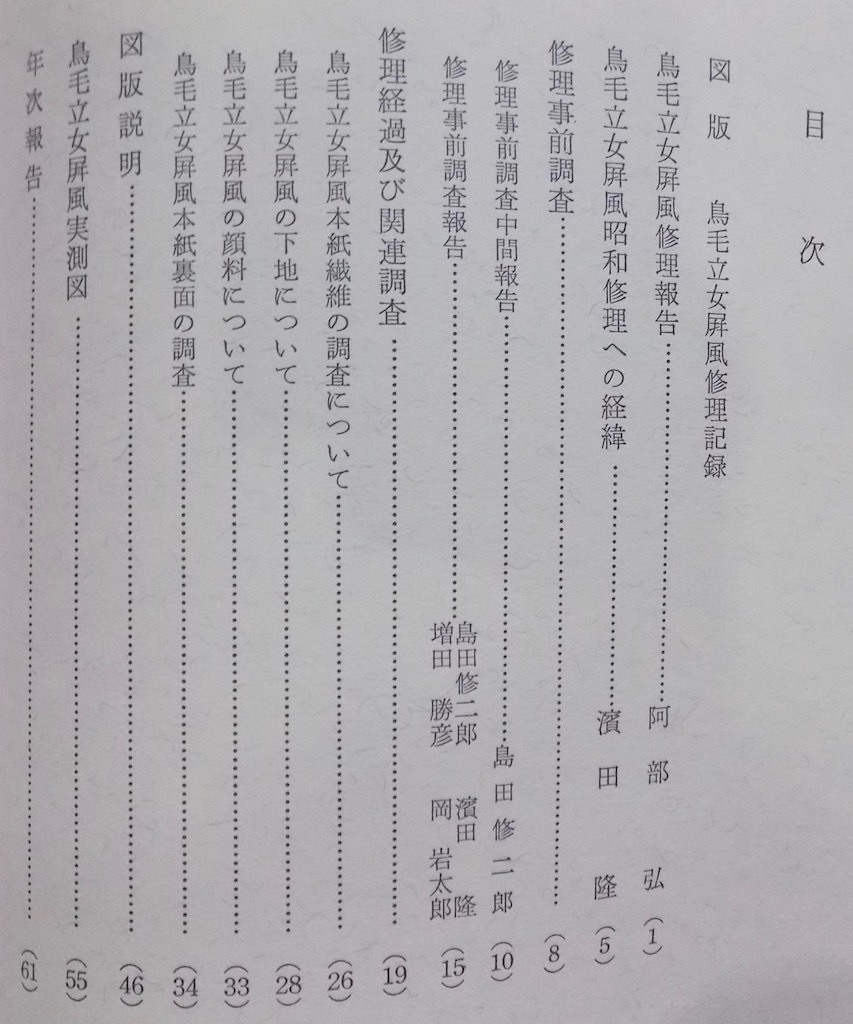 目次
図版　鳥毛立女屛風修理記録
鳥毛立女屛風修理報告……阿部　弘（1）
鳥毛立女屛風昭和修理への経緯……濱田　隆（5）
修理事前調査……（8）
修理事前調査中間報告……島田修二郎（10）
修理事前調査報告……島田修二郎　濱田　隆　増田　勝彦　岡　岩太郎（15）
修理経過及び関連調査……（19）
鳥毛立女屛風本紙繊維の調査について……（26）
鳥毛立女屛風の下地について……（28）
鳥毛立女屛風の顔料について……（33）
鳥毛立女屛風本紙裏面の調査……（34）
図版説明……（46）
鳥毛立女屛風実測図……（55）
年次報告……（61）